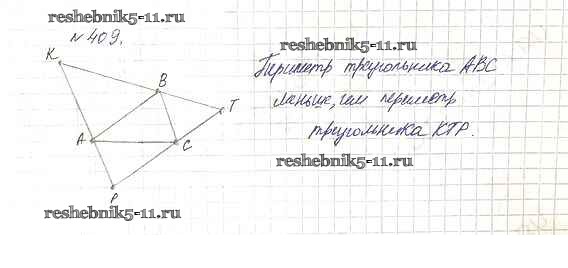 reshebnik5-11.ru
№409.
K
B
T
A
C
P
reshebnik5-11.ru
Периметр треугольника ABC
меньше, чем периметр
треугольника KTP.
reshebnik5-11.ru
reshebnik5-11.ru